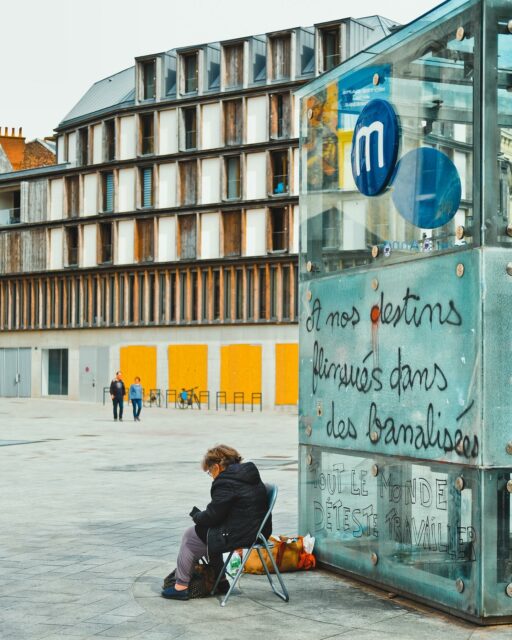 m
A nos destins
flingués dans
des banalisées
TOUT LE MONDE
DÉTESTE TRAVAILLER